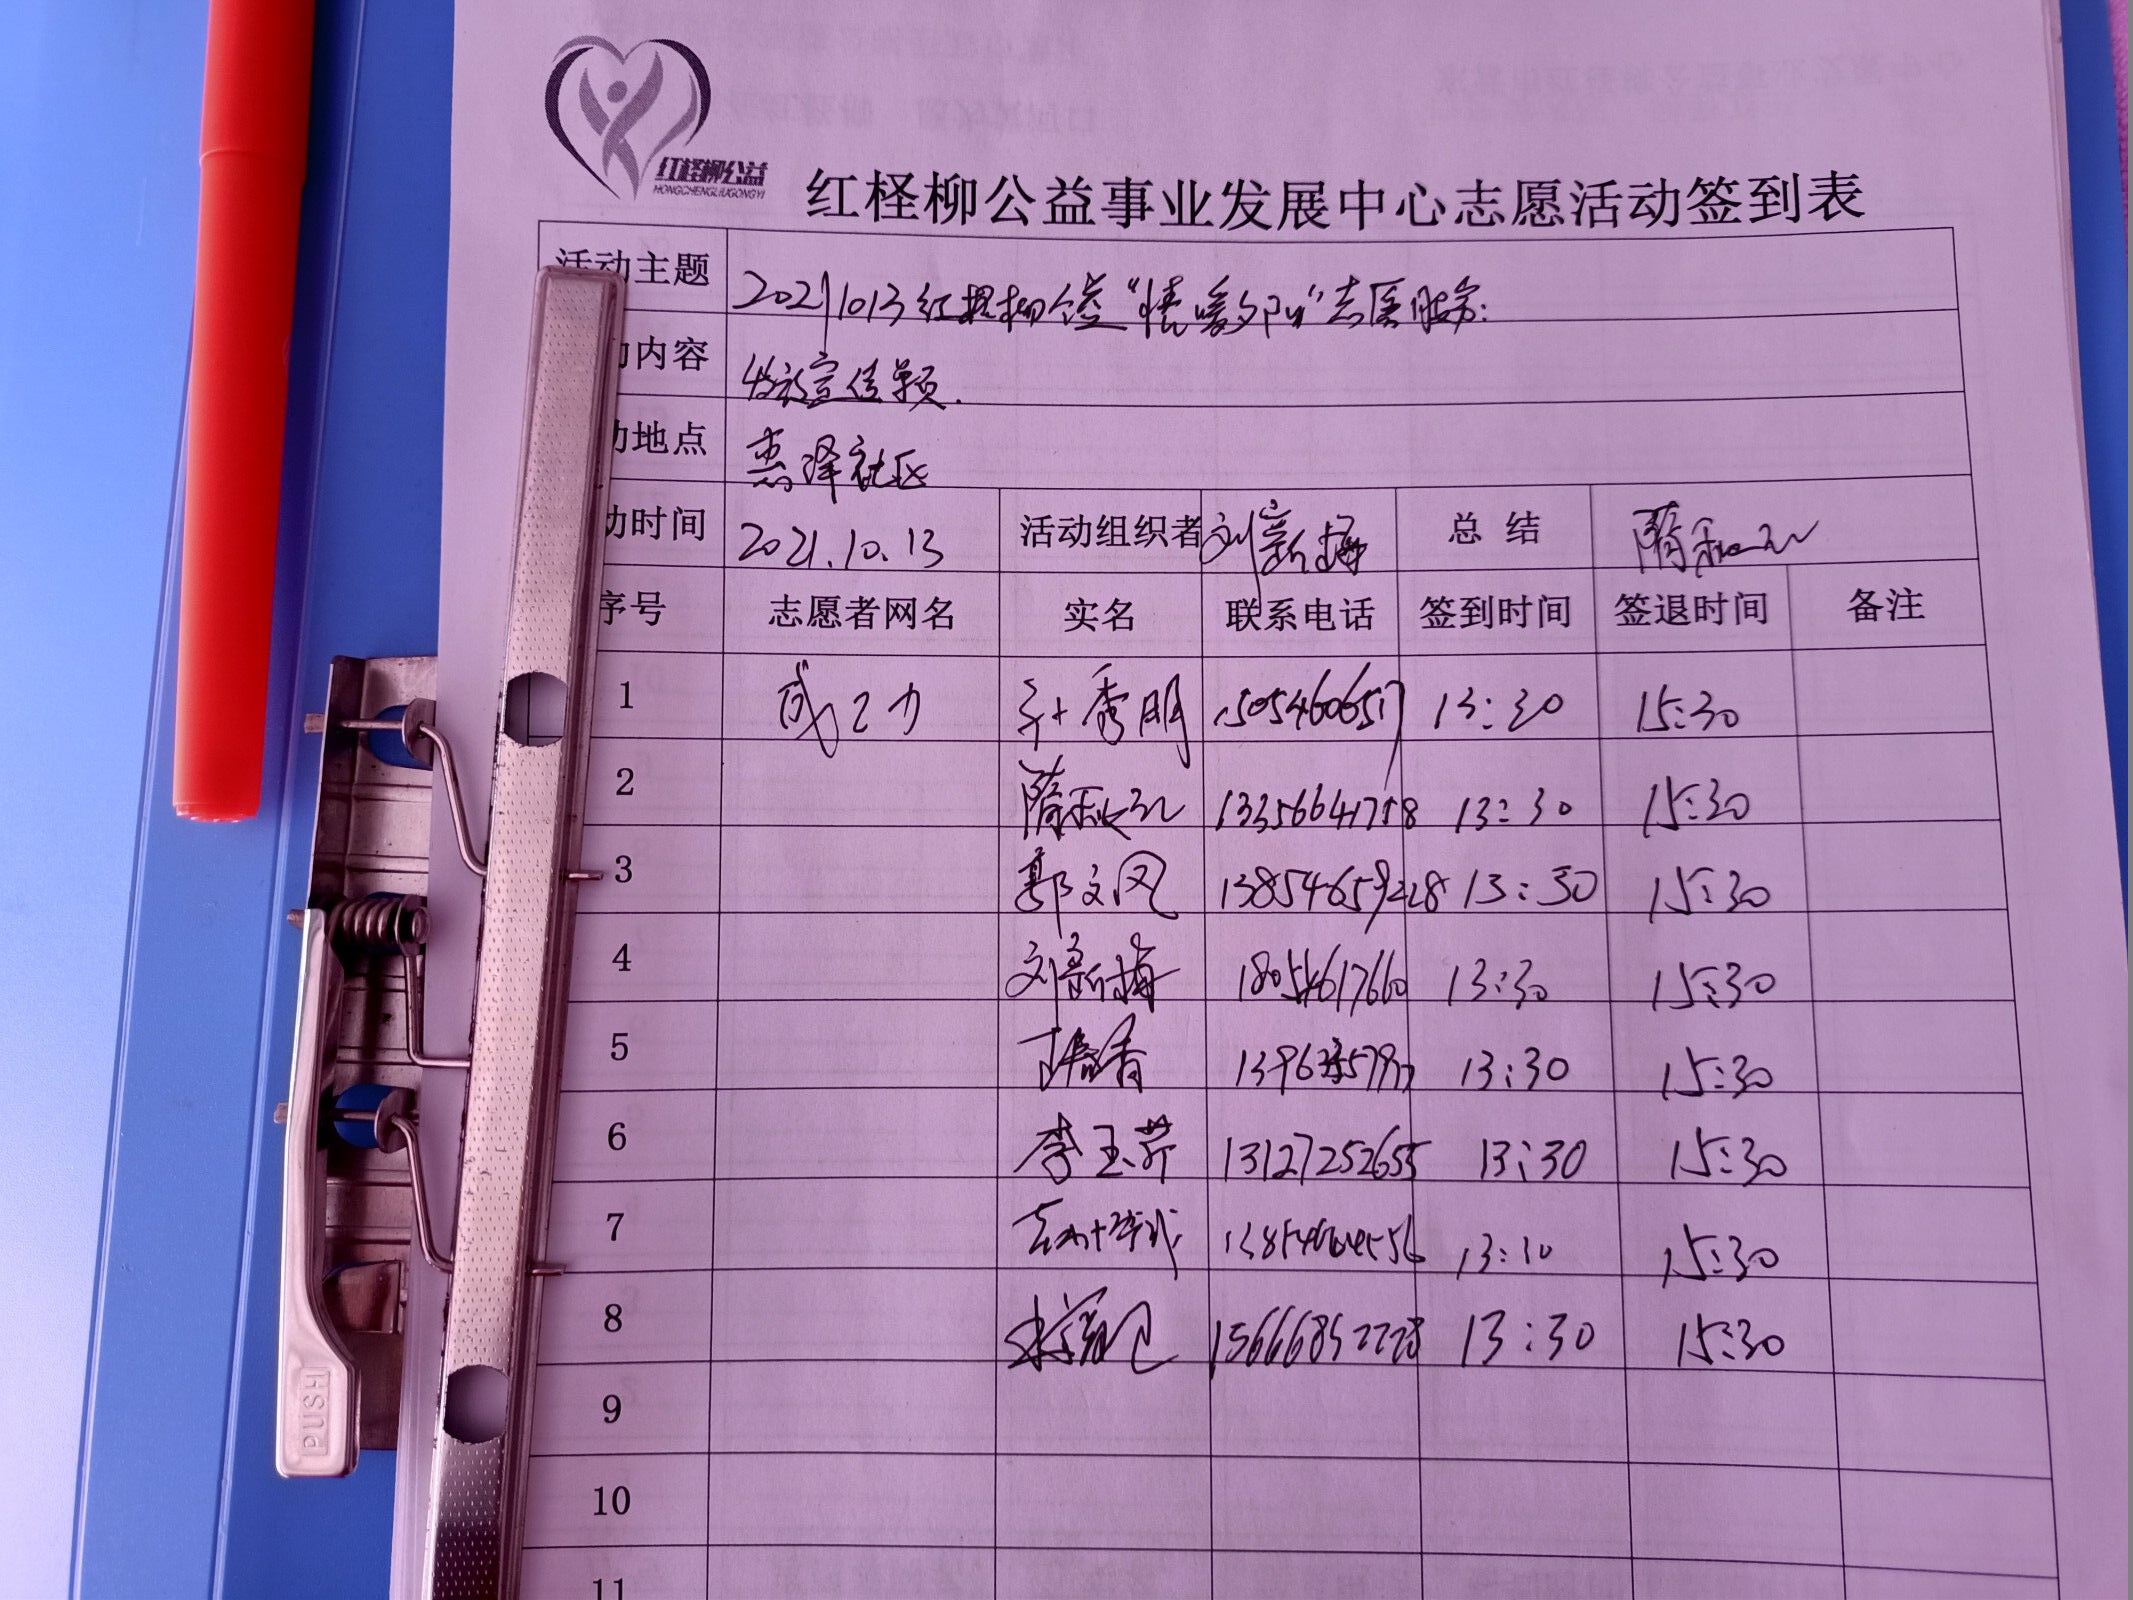 红柽柳公益
HONGCHENGLIUGONGYI
红柽柳公益事业发展中心志愿活动签到表
活动主题 20211013红柽柳公益“情暖夕阳”志愿服务:
动内容 发放宣传单页.
动地点 惠泽社区
动时间 2021.10.13 活动组织者 刘新梅 总 结 隋秋
序号 志愿者网名 实名 联系电话 签到时间 签退时间 备注
1 秀明 13:30 15:30
2 隋秋 13356641758 13:30 15:30
3 郭文凤 13854659228 13:30 15:30
4 刘新梅 18054617660 13:30 15:30
5 香 13:30 15:30
6 李玉芹 13127252655 13:30 15:30
7 13:30 15:30
8 15666852228 13:30 15:30
9
10
11
PUSH